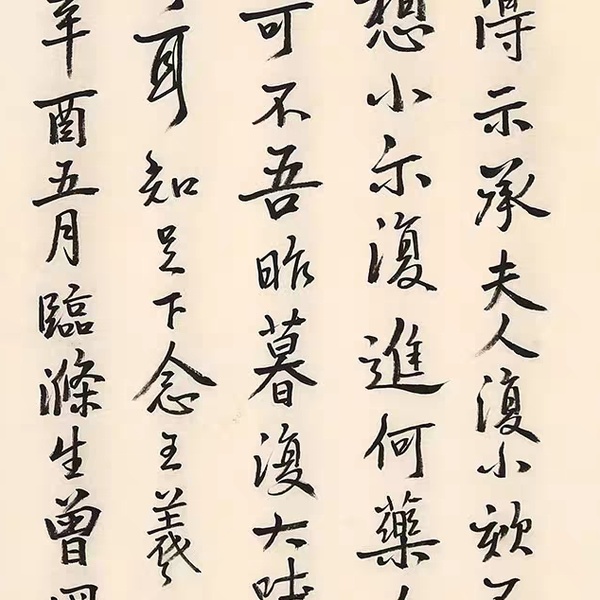 得示承夫人復小欬
想小示復進何藥
可不吾昨暮復大
耳知足下念王羲
辛酉五月臨滌生曾